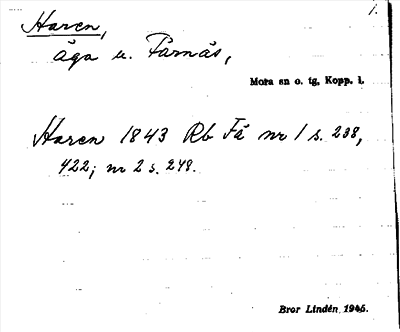 1.
Haren,
äga u. Färnäs,
Mora sn o. tg, Kopp. l.
Haren 1843 Rb Få nr 1 s. 238,
422; nr 2 s. 248.
Bror Lindén 1946.